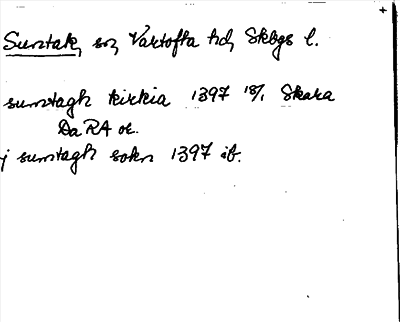 Suntak, sn, Vartofta hd, Skbgs l.
sumtagh kirkia 1397 18/1 Skara
DaRA or.
j sumtagh sokn 1397 ib.